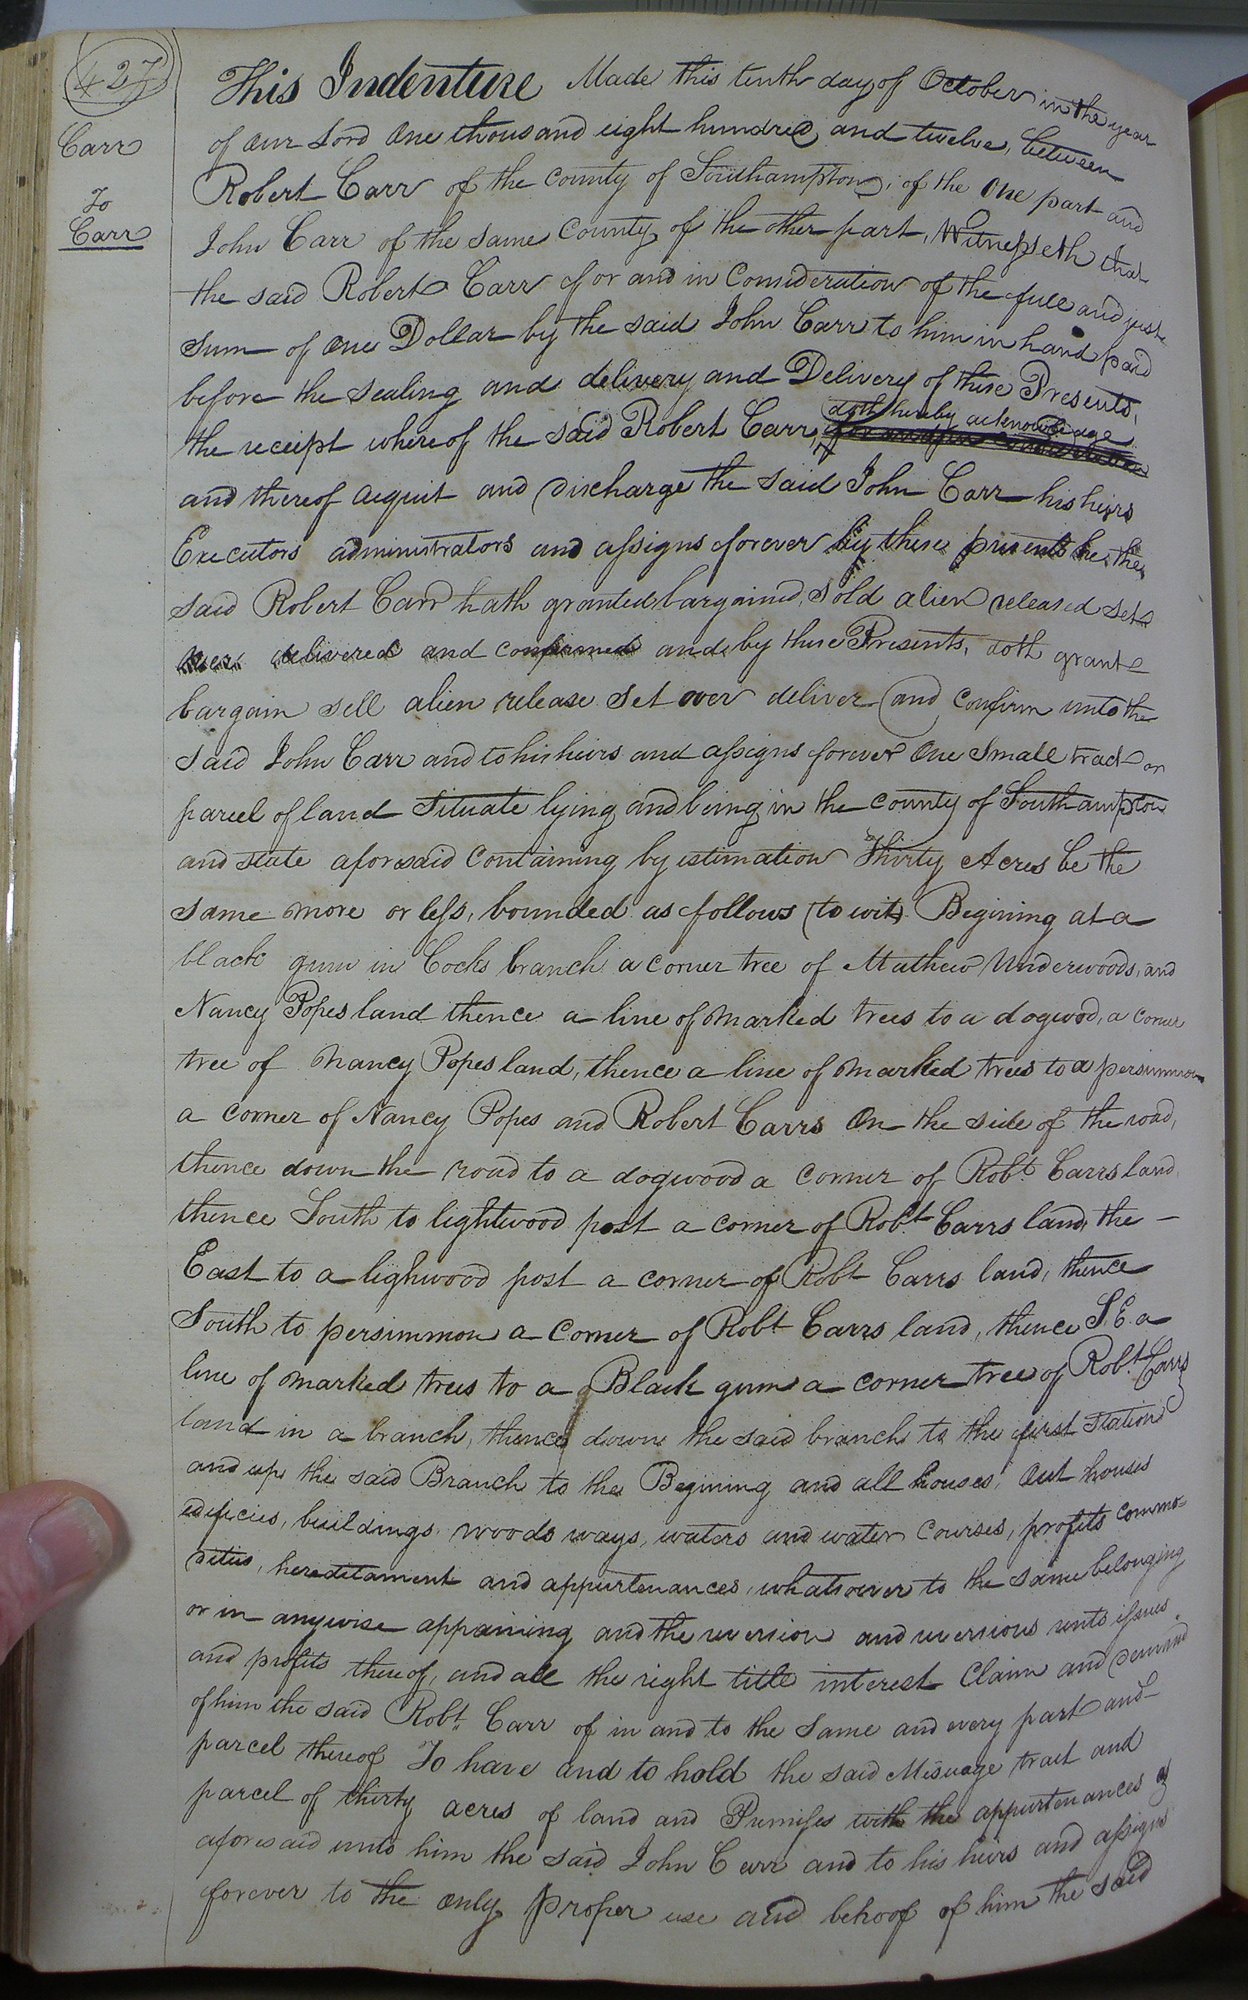 427
Carr
To
Carr
This Indenture Made this tenth day of October in the year
of our Lord One thousand eight hundred and twelve, between
Robert Carr of the County of Southampton, of the One part and
John Carr of the same County of the other part, Witnesseth that
the said Robert Carr for and in Consideration of the full and just
Sum of One Dollar by the said John Carr to him in hand paid
before the sealing and delivery and Delivery of these Presents,
the receipt whereof the said Robert Carr, doth hereby acknowledge
and thereof acquit and discharge the said John Carr his heirs
Executors administrators and assigns forever by these presents he the
said Robert Carr hath granted bargained, sold alien released set
over delivered and confirmed and by these Presents, doth grant
bargain sell alien release set over deliver and confirm unto the
said John Carr and to his heirs and assigns forever One Small tract or
parcel of land situate lying and being in the county of Southampton
and state aforesaid Containing by estimation Thirty Acres be the
same more or less, bounded as follows (to wit) Begining at a
black gum in Cocks branch a corner tree of Mathew Underwoods, and
Nancy Popes land thence a line of marked trees to a dogwood, a corner
tree of Nancy Popes land, thence a line of marked trees to a persimmon
a corner of Nancy Popes and Robert Carrs On the side of the road,
thence down the road to a dogwood a corner of Robt. Carrs land,
thence South to lightwood post a corner of Robt. Carrs land, the –
East to a lighwood post a corner of Robt Carrs land, thence
South to persimmon a Corner of Robt Carrs land, thence S.E. a
line of marked trees to a Black gum a corner tree of Robt Carrs
land in a branch, thence down the said branch to the first station
and up the said Branch to the Begining and all houses, Out houses
edificies, buildings woods ways, waters and water Courses, profits commo=
dities, hereditament and appurtenances, whatsoever to the same belonging
or in anywise appaining and the reversion and reversions rents issues
and profits thereof, and all the right title interest Claim and demand
of him the said Robt. Carr of in and to the Same and every part and
parcel thereof To have and to hold the said Mesuage tract and
parcel of thirty acres of land and Premises with the appurtenances as
aforesaid unto him the said John Carr and to his heirs and assigns
forever to the only proper use and behoof of him the said